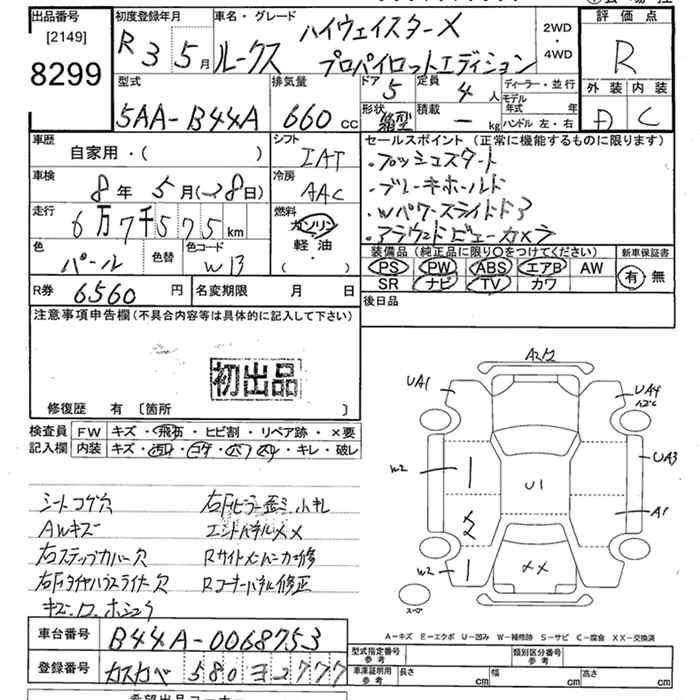 出品番号 初度登録年月 車名・グレード 評価点
[2149] R3 5月 ルークス ハイウェイスターX 2WD
8299 プロパイロットエディション ・4WD R
型式 排気量 ドア 5 定員 4人 ディーラー・並行 外装 内装
5AA-B44A 660cc 形状 箱型 積載 -kg モデル年式 年 C
ハンドル 左・右
車歴 自家用・( ) シフト IAT セールスポイント(正常に機能するものに限ります)
車検 8年 5月(28日) 冷房 AAC ・プッシュスタート
走行 6万7千575km 燃料 ガソリン 軽油 ( ・ ) ・ブレーキホールド
・Wパワースライドドア
・アラウンドビューカメラ
色 パール 色替 色コード W13
装備品(純正品に限り○をつけてください) 新車保証書
PS PW ABS エアB AW 有・無
SR ナビ TV カワ
R券 6560円 名変期限 月 日 後日品
注意事項申告欄(不具合内容等は具体的に記入して下さい)
初出品
修復歴 有 [箇所 ]
検査員記入欄 FW キズ・飛石・ヒビ割・リペア跡・×要
内装 キズ・ ・コゲ・ ・ ・キレ・破レ
シートコゲ穴 右Fピラー歪ミ
AWキズ エンドパネルXX
右ステップカバー穴 Rサイドメンバー修
右Fタイヤハウスライナー穴 Rコーナーパネル修正
A2/2
UA1 UA4
W2 U1 UA3
A1
XX
W2 XX
スペア
A-キズ E-エクボ U-凹み W-補修跡 S-サビ C-腐食 XX-交換済
車台番号 B44A-0068753
型式指定番号 参考 類別区分番号 参考
登録番号 カスカベ 580 ヨ 2777
車庫証明用 参考 長さ cm 幅 cm 高さ cm
希望出品コーナー